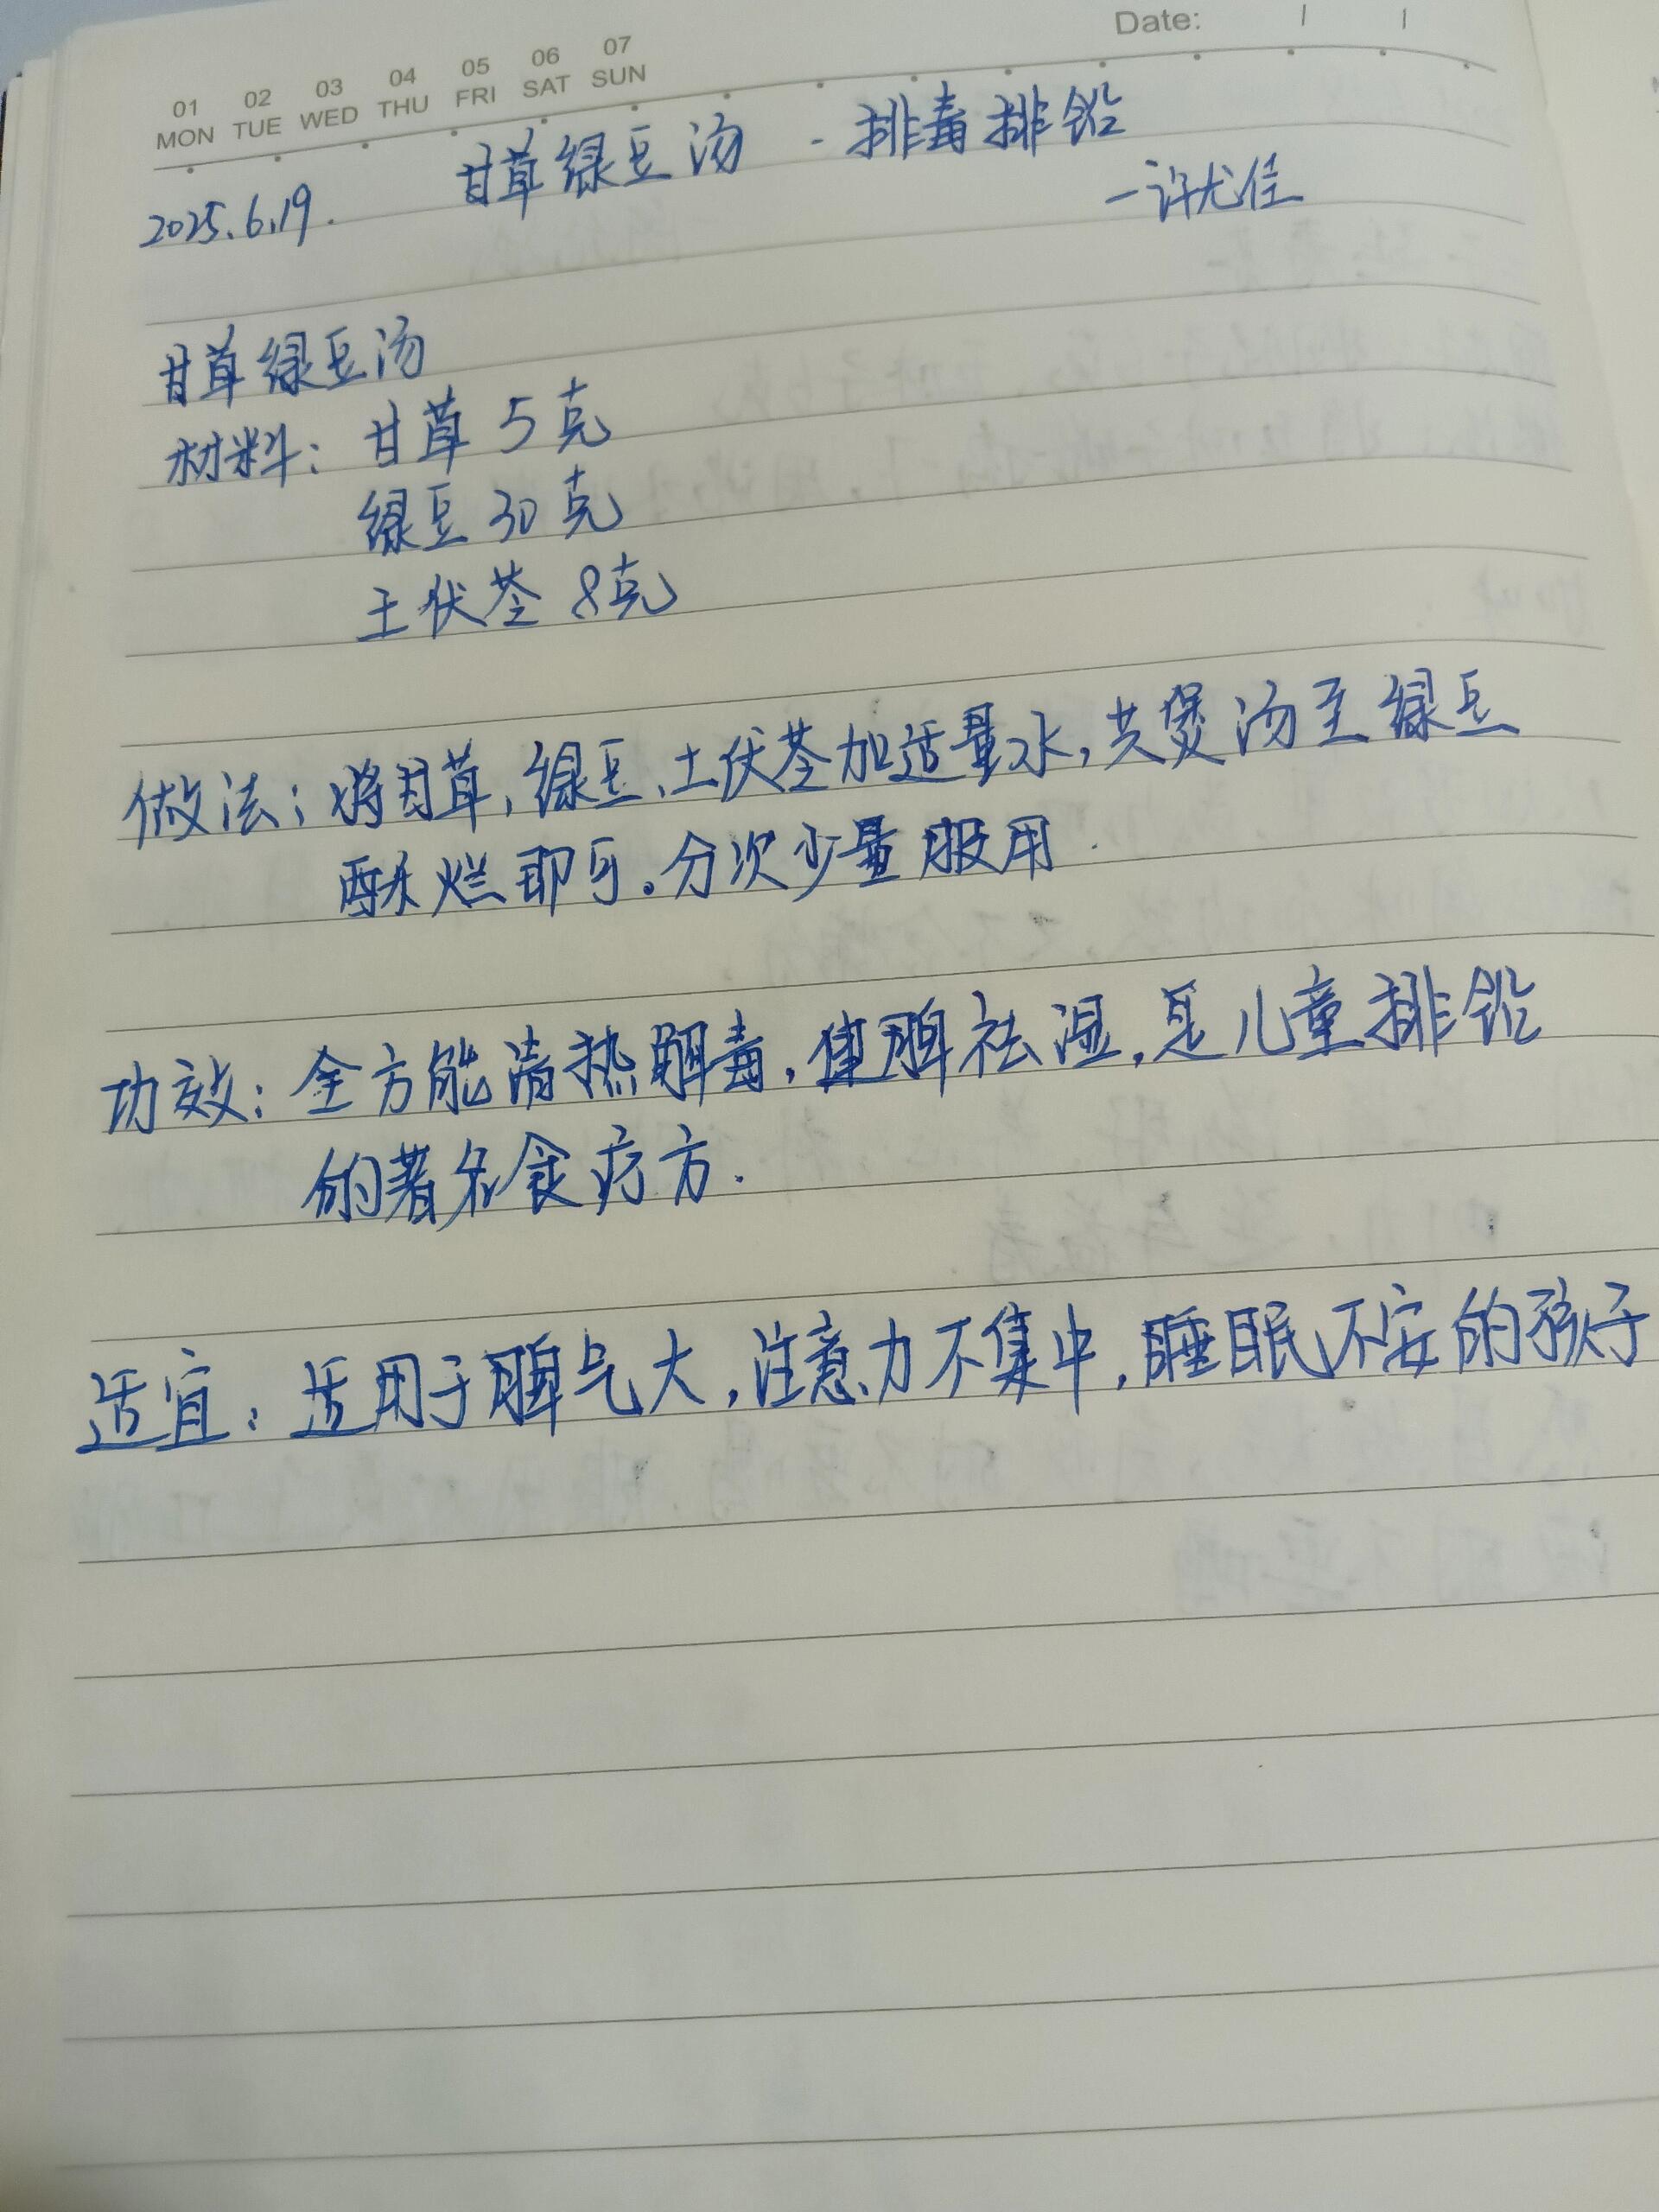 Date: / /
01 02 03 04 05 06 07
MON TUE WED THU FRI SAT SUN
甘草绿豆汤 - 排毒排铅
2025.6.19. —许尤佳
甘草绿豆汤
材料: 甘草 5 克
绿豆 30 克
土伏苓 8克
做法: 将甘草, 绿豆、土伏苓加适量水, 共煲汤至绿豆
酥烂即可。分次少量服用.
功效: 全方能清热解毒, 健脾祛湿, 是儿童排铅
的著名食疗方.
适宜: 适用于脾气大, 注意力不集中, 睡眠不安的孩子